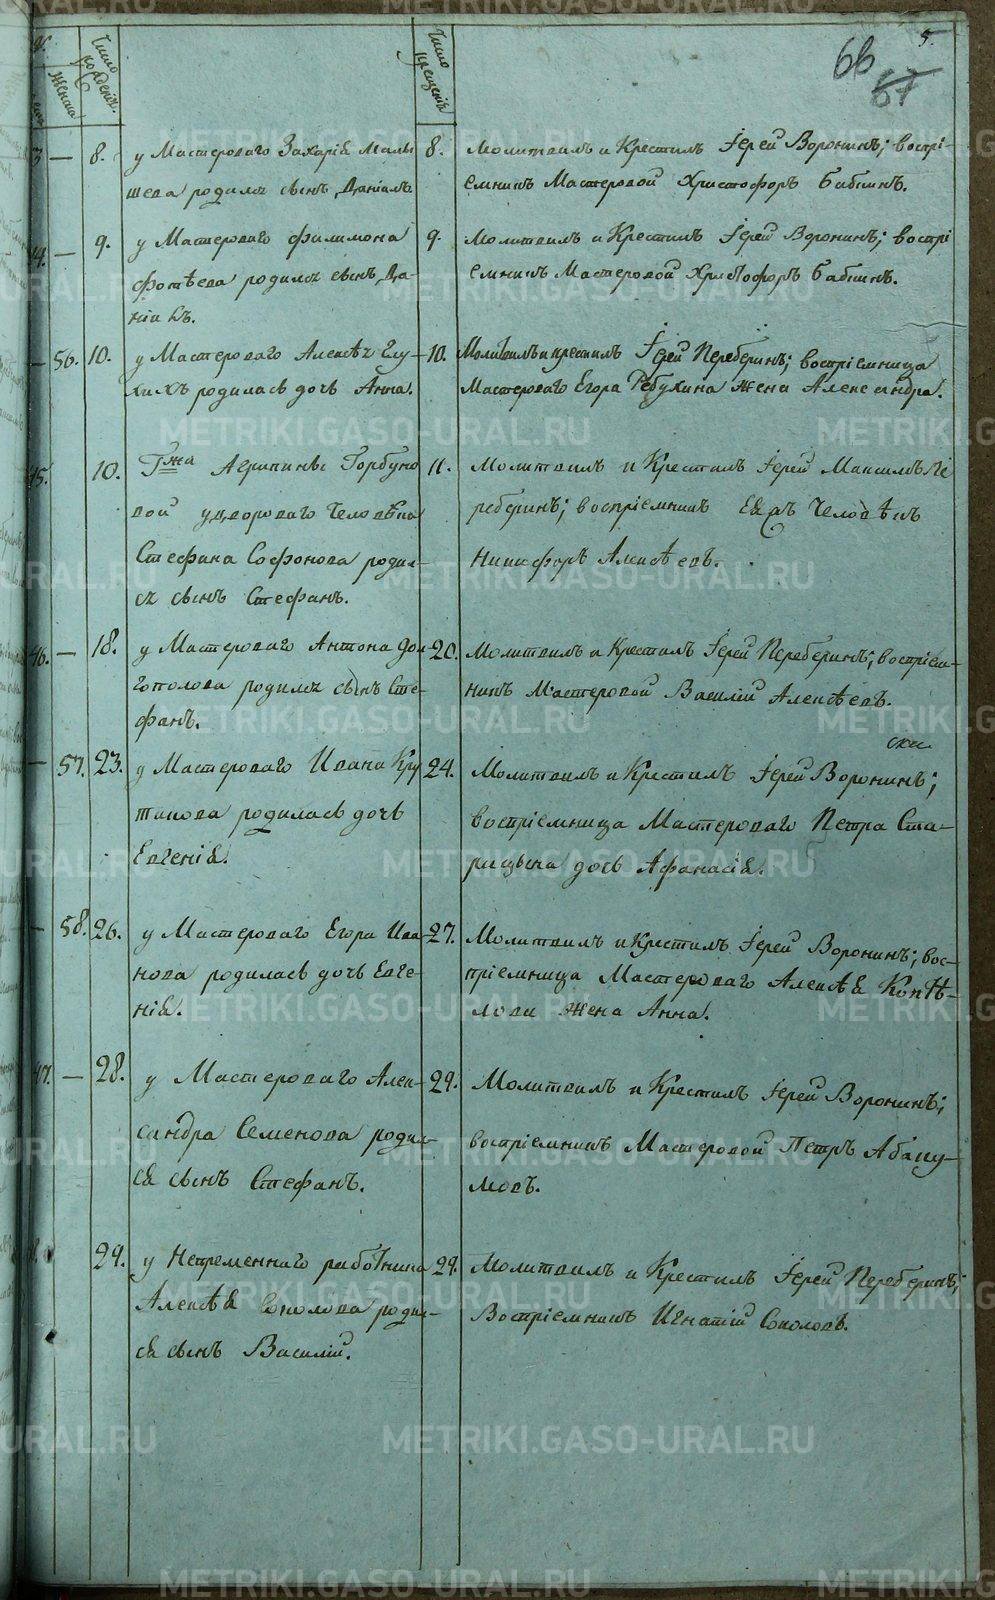 5.
66
67
Женска
Число рожденія.
Число крещенія
3 — 8. у Мастероваго Захарія Малы
шева родился сынъ Даніилъ
8. Молитвилъ и Крестилъ Іерей Воронинъ; воспрі-
емникъ Мастеровой Христофоръ Бабкинъ.
44. — 9. у Мастероваго Филимона
Фотѣева родился сынъ Да-
ніилъ.
9. Молитвилъ и Крестилъ Іерей Воронинъ; воспрі
емникъ Мастеровой Христофоръ Бабкинъ.
— 56. 10. у Мастероваго Алексѣя Глу-
хихъ родилась дочь Анна.
10. Молитвилъ и крестилъ Іерей Переберинъ; воспріемница
Мастероваго Егора Ребухина жена Александра.
45. 10. Гжа Агрипины Горбуно
вой у двороваго Человѣка
Стефана Софонова родил-
ся сынъ Стефанъ.
11. Молитвилъ и Крестилъ Іерей Максимъ Пе
реберинъ; воспріемникъ Ея Человѣкъ
Никифоръ Алексѣевъ.
46. — 18. у Мастероваго Антона Дол
гополова родился сынъ Сте-
фанъ.
20. Молитвилъ и Крестилъ Іерей Переберинъ; воспріем-
никъ Мастеровой Василій Алексѣевъ.
— 57. 23. у Мастероваго Ивана Кру
тикова родилась дочь
Евгенія.
24. Молитвилъ и Крестилъ Іерей Воронинъ;
воспріемница Мастероваго Петра Ста-
рицына дочь Афанасія.
— 58. 26. у Мастероваго Егора Ива
нова родилась дочь Евге-
нія.
27. Молитвилъ и Крестилъ Іерей Воронинъ; вос-
пріемница Мастероваго Алексѣя Копѣ-
лова жена Анна.
47. — 28. у Мастероваго Алек-
сандра Семенова родил-
ся сынъ Стефанъ.
29. Молитвилъ и Крестилъ Іерей Воронинъ;
воспріемникъ Мастеровой Петръ Абаку-
мовъ.
29. у Непременнаго работника
Алексѣя Соколова родил-
ся сынъ Василій.
29. Молитвилъ и Крестилъ Іерей Переберинъ;
Воспріемникъ Игнатій Соколовъ.
METRIKI.GASO-URAL.RU